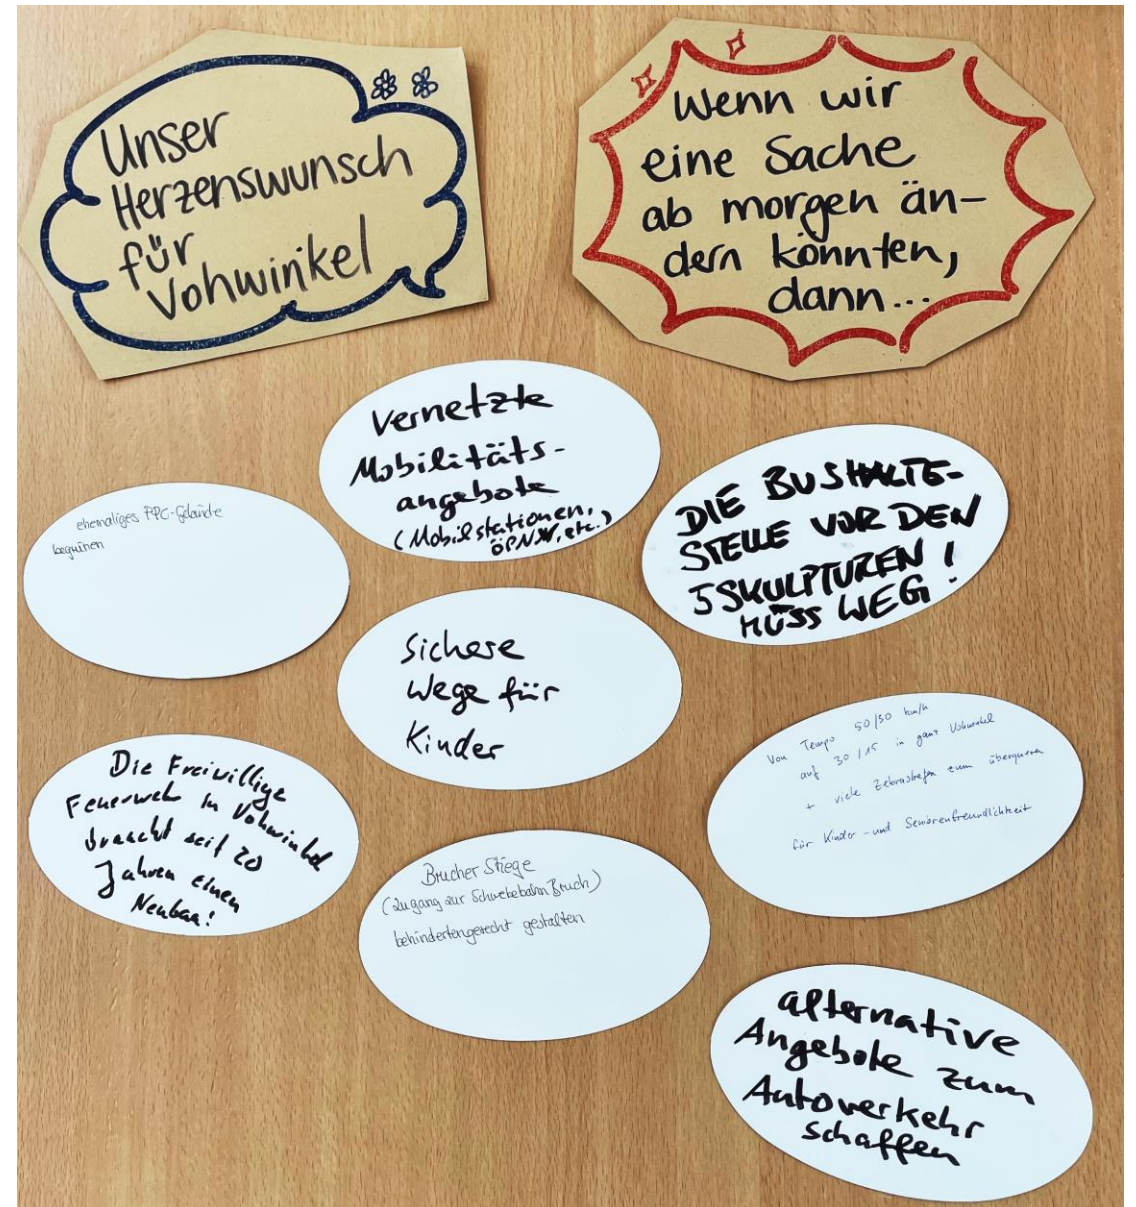 Unser
Herzenswunsch
für
Vohwinkel
Wenn wir
eine Sache
ab morgen än-
dern könnten,
dann...
Vernetzte
Mobilitäts-
angebote
(Mobilstationen,
ÖPNV, etc.)
DIE BUSHALTE-
STELLE VOR DEN
5 SKULPTUREN !
MUSS WEG!
ehemaliges PPC-Gelände
begrünen
Sichere
Wege für
Kinder
Die Freiwillige
Feuerwehr in Vohwinkel
braucht seit 20
Jahren einen
Neubau!
Von Tempo 50/30 km/h
auf 30/15 in ganz Vohwinkel
+ viele Zebrastreifen zum überqueren
für Kinder- und Seniorenfreundlichkeit
Brucher Stiege
(Zugang zur Schwebebahn Bruch)
behindertengerecht gestalten
alternative
Angebote zum
Autoverkehr
schaffen